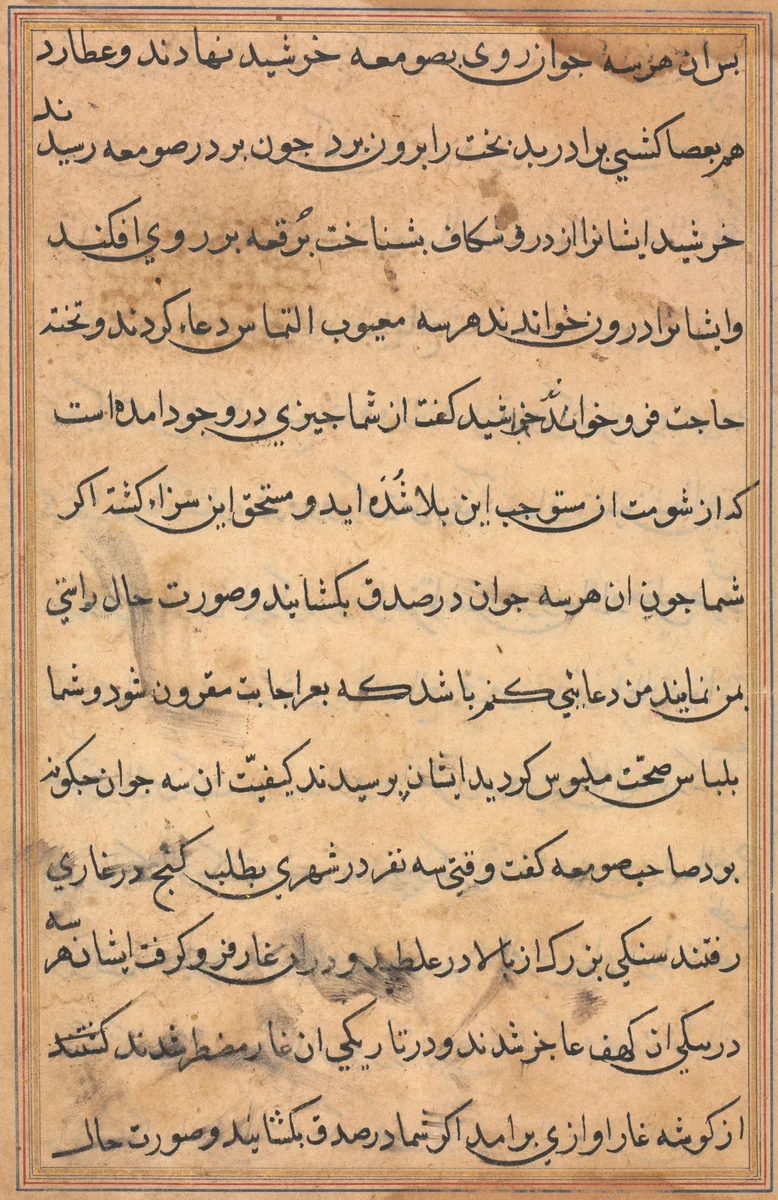 بس ان هرسه جوان روی بصومعه خرشید نهادند وعطارد
هم بعصا کشیی برادر بد بخت را برون برد جون بر در صومعه رسیدند
خرشید ایشانرا از در و شکاف بشناخت بُرقعه بر روی افکند
وایشانرا درون خواندند هرسه معیوب التماس دعاء کردند وتخته
حاجت فرو خواندند خرشید کفت از شما جیزی در وجود امده است
که از شومت ان مستوجب این بلا شُدَه اید و مستحق این سزاء کشته اکر
شما جون ان هرسه جوان در صدق بکشایند وصورت حال راستی
بمن نمایند من دعائی کنم باشد که بعز اجابت مقرون شود وشما
بلباس صحّت ملبوس کردید ایشان پرسیدند کیفیّت ان سه جوان جکونه
بود صاحب صومعه کفت وقتی سه نفر در شهری بطلب کنج در غاری
رفتند سنکی بزرک از بالا در غلطید ودر ان غار فرو کرفت ایشان هرسه
در ان کهف عاجز شدند ودر تاریکی ان غار مضطر شدند
از کوشه غار اوازی برامد اکر شما در صدق بکشایید وصورت حال